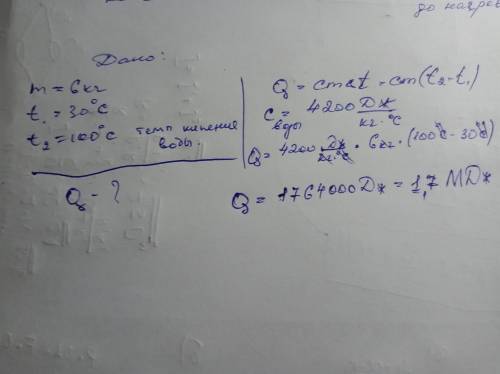 до нагрев
Дано:
m = 6кг
t₁ = 30°C
t₂ = 100°C темп кипения
воды.
Q - ?
Q = cmΔt = cm(t₂-t₁)
c = 4200 Дж/кг·°C
воды
Q = 4200 Дж/кг·°C · 6кг · (100°C - 30°C)
Q = 1764000 Дж = 1,7 МДж